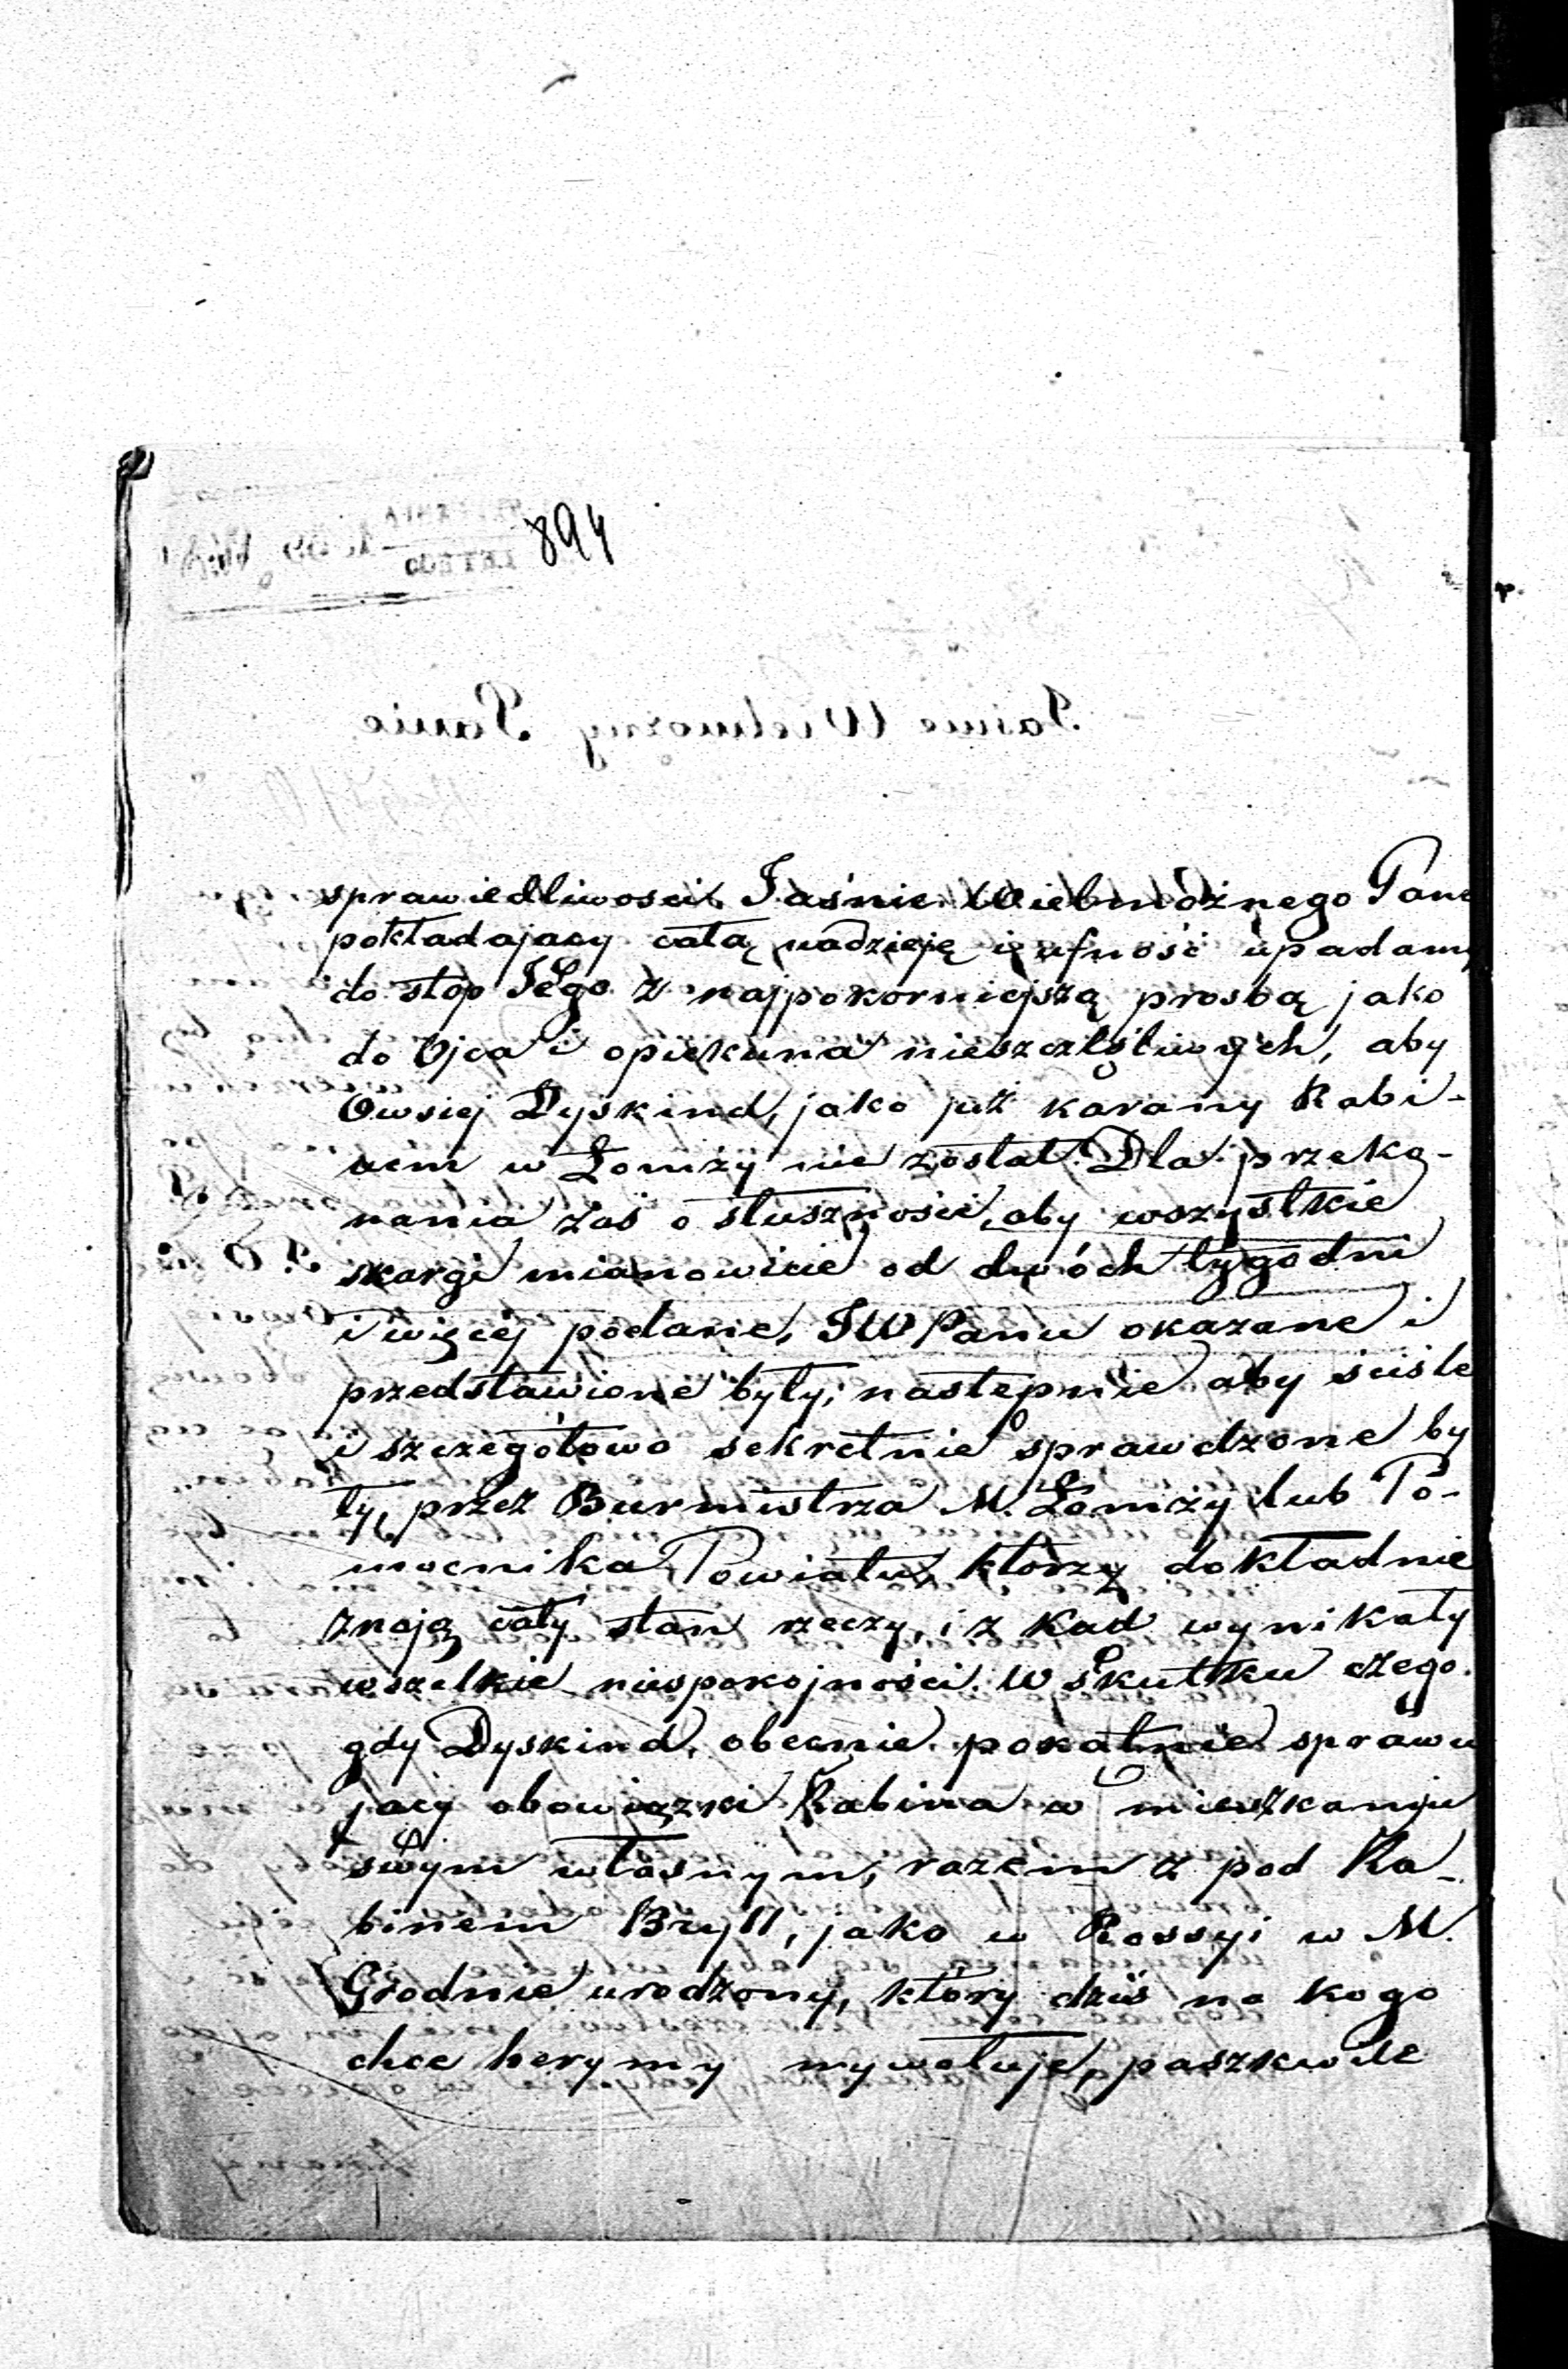 894
sprawiedliwości Jaśnie Wielmożnego Pana
pokładający całą nadzieję i ufność upadamy
do stóp Jego z najpokorniejszą prosbą jako
do Ojca i opiekuna nieszczęśliwych, aby
Owsiej Dyskind, jako już karany Rabi-
nem w Łomży nie został. Dla przeko-
nania zaś o słuszności, aby wszystkie
skargi mianowicie od dwóch tygodni
i więcej podane, JW Panu okazane i
przedstawione były; następnie aby ściśle
i szczegółowo sekretnie sprawdzone by
ły, przez Burmistrza M. Łomży, lub Po-
mocnika Powiatu, którzy dokładnie
znają cały stan rzeczy, i z kad wynikały
wszelkie niespokojności. W skutku czego
gdy Dyskind, obecnie pokątnie sprawu
jący obowiązki Rabina w mieszkaniu
swym własnym, razem z pod Ra-
binem Bryll, jako w Rossyi w M.
Grodnie urodzony, który dziś na kogo
chce herymy wywołuje, paszkwile